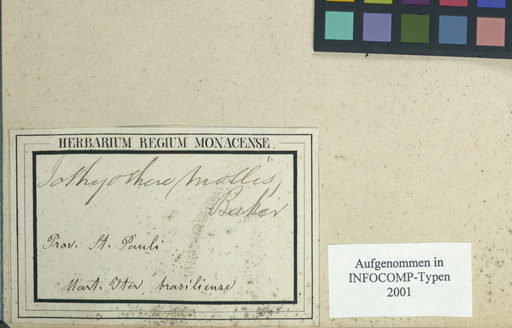 HERBARIUM REGIUM MONACENSE.
mollis,
Baker
Prov. St. Pauli
Mart. Iter brasiliense
Aufgenommen in
INFOCOMP-Typen
2001